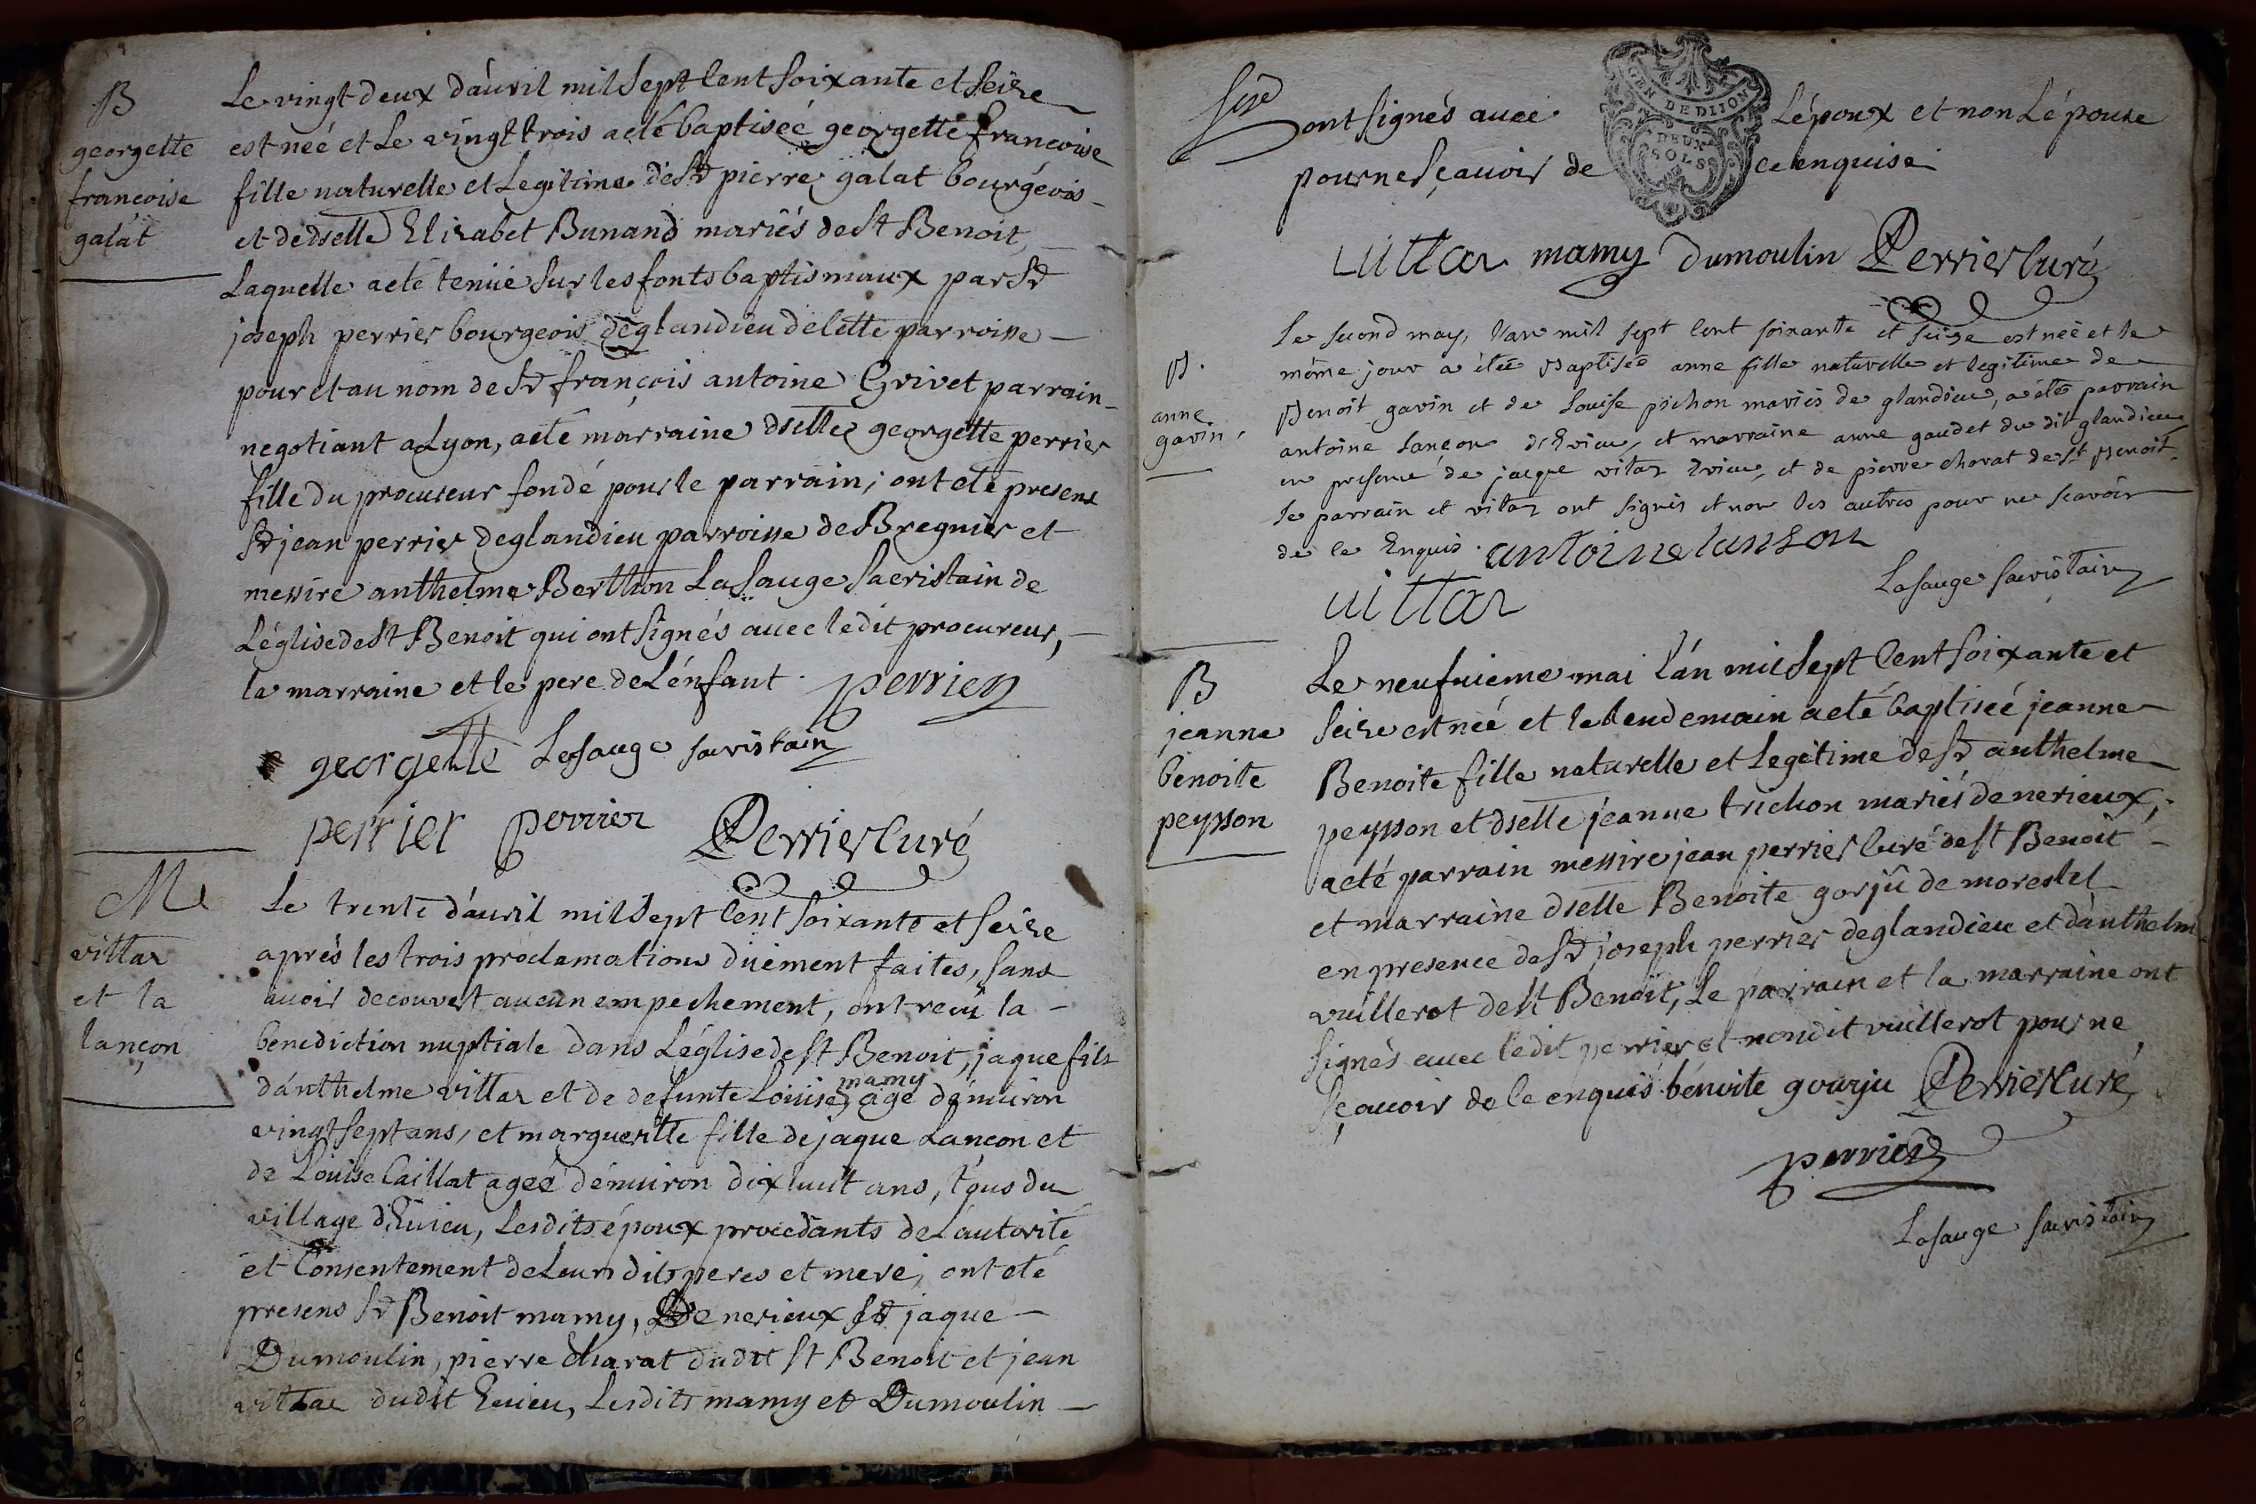 B
georgette
francoise
galat
Le vingt deux d'auril mil sept Cent soixante et seize
est néé et Le vingt trois a eté baptiséé georgette francoise
fille naturelle et Legitime de Sr pierre galat bourgeois
et de dselle Elizabet Bunand mariés de St Benoit,
Laquelle a eté tenüe sur les fonts baptismaux par Sr
joseph perrier bourgeois de glandieu de Cette parroisse
pour et au nom de Sr françois antoine Grivet parrain
negotiant a Lyon, a eté marraine dselle georgette perrier
fille du procureur fondé pour le parrain; ont eté presens
Sr jean perrier de glandieu parroisse de Bregnier et
messire anthelme Berthon Lasauge sacristain de
L'églíse de St Benoit qui ont signés auec le dit procureur,
la marraine et le pere de L'énfant. perrier
georgette Lasauge sacristain
perrier perrier Perrier Curé
M
villar
et la
lançon
Le trente d'auril mil sept Cent soixante et seize
aprés les trois proclamations düement faites, sans
auoir decouvert aucun empechement, ont reçu la
benediction nuptiale dans L'église de St Benoit, jaque fils
d'anthelme villar et de defunte Loüise mamy agé d'énuiron
vingt sept ans, et marguerite fille de jaque Lançon et
de Louise Caillat ageé d'énuiron dix huit ans, tous du
village d'Euieu, Lesdits époux procedants de L'autorité
et Consentement de Leurs dits peres et mere; ont eté
presens Sr Benoit mamy, De nerieux Sr jaque
Dumoulin, pierre Charat du dit St Benoit et jean
villar du dit Euieu, Lesdits mamy et Dumoulin
GEN DE DIJON
DEUX
SOLS
ont signés auec L'époux et non L'épouse
pour ne sçauoir de ce enquise
uittar mamy Dumoulin Perrier Curé
B.
anne
gavin
Le second may, l'an mil sept Cent soixante et seize est néé et le
même jour a étéé Baptiséé anne fille naturelle et legitime de
Benoit gavin et de Louise pichon mariés de glandieu, a été parrain
antoine Lançon d'Evieu, et marraine anne gaudet du dit glandieu
en presence de jacque vitar Evieu, et de pierre charat de St Benoit.
Le parrain et vitar ont signés et non les autres pour ne scavoir
de ce Enquis. antoine lanson
uittar Lasauge sacristain
B
jeanne
benoite
peysson
Le neufuieme mai L'án mil sept Cent soixante et
seize est néé et le Lendemain a eté baptiséé jeanne
Benoite fille naturelle et Legitime de Sr anthelme
peysson et dselle jeanne trichon mariés de nerieux;
a eté parrain messire jean perrier Curé de St Benoit
et marraine dselle Benoite gorjû de morestel
en presence de Sr joseph perrier de glandieu et d'anthelme
vuillerot de St Benoit, Le parrain et la marraine ont
signés auec ledit perrier et non dit vuillerot pour ne
sçauoir de ce enquis benoite gourju Perrier Curé
perrier
Lasauge sacristain